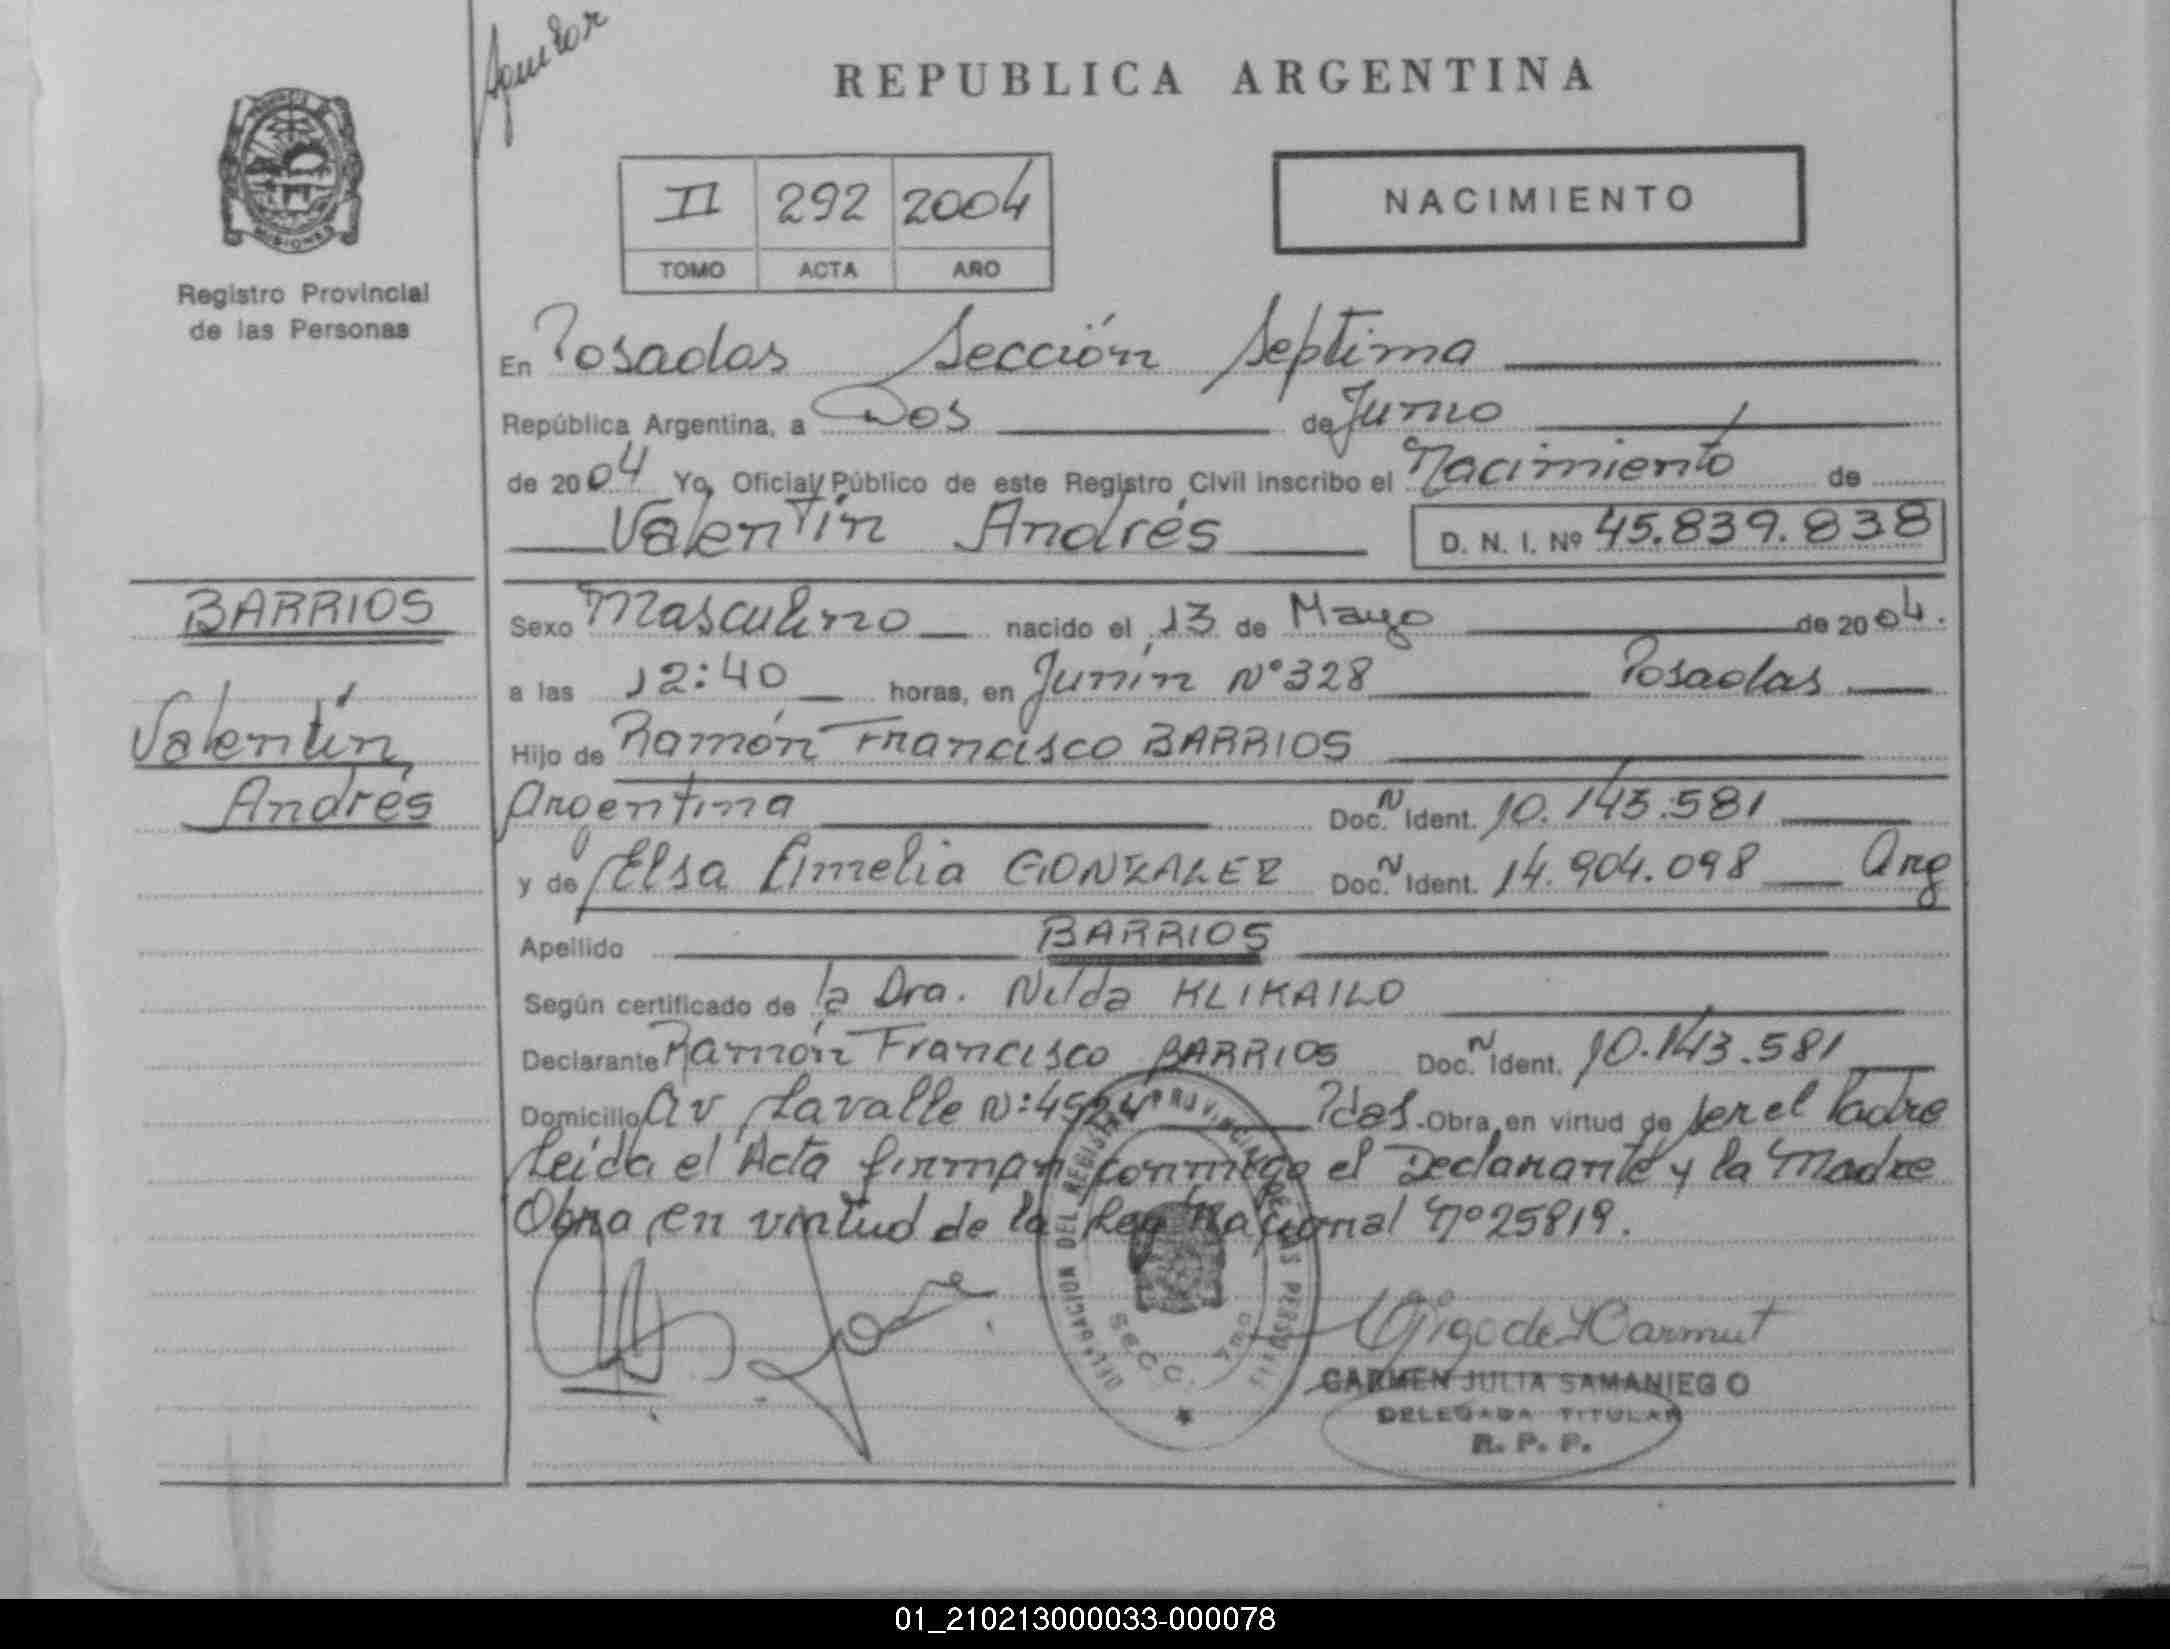 Aguilar
REPUBLICA ARGENTINA
II 292 2004
TOMO ACTA AÑO
NACIMIENTO
MISIONES
Registro Provincial
de las Personas
En Posadas Sección Septima
República Argentina, a Dos de Junio
de 2004 Yo, Oficial Público de este Registro Civil inscribo el Nacimiento de
Valentín Andrés D. N. I. Nº 45.839.838
BARRIOS
Valentín
Andrés
Sexo Masculino nacido el 13 de Mayo de 2004.
a las 12:40 horas, en Junín Nº 328 Posadas
Hijo de Ramón Francisco BARRIOS
Argentina Doc. N Ident. 10.143.581
y de Elsa Amelia GONZALEZ Doc. N Ident. 14.904.098 Arg
Apellido BARRIOS
Según certificado de la Dra. Nilda KLIKAILO
Declarante Ramón Francisco BARRIOS Doc. N Ident. 10.143.581
Domicilio Av Lavalle N: Pdas. Obra en virtud de ser el Padre
Leida el Acta firman conmigo el Declarante y la Madre
Obra en virtud de la Ley Nacional Nº 25819.
DELEGACION DEL REGISTRO PROVINCIAL DE LAS PERSONAS
SECC. 7ma
CARMEN JULIA SAMANIEGO
DELEGADA TITULAR
R. P. P.
01_210213000033-000078